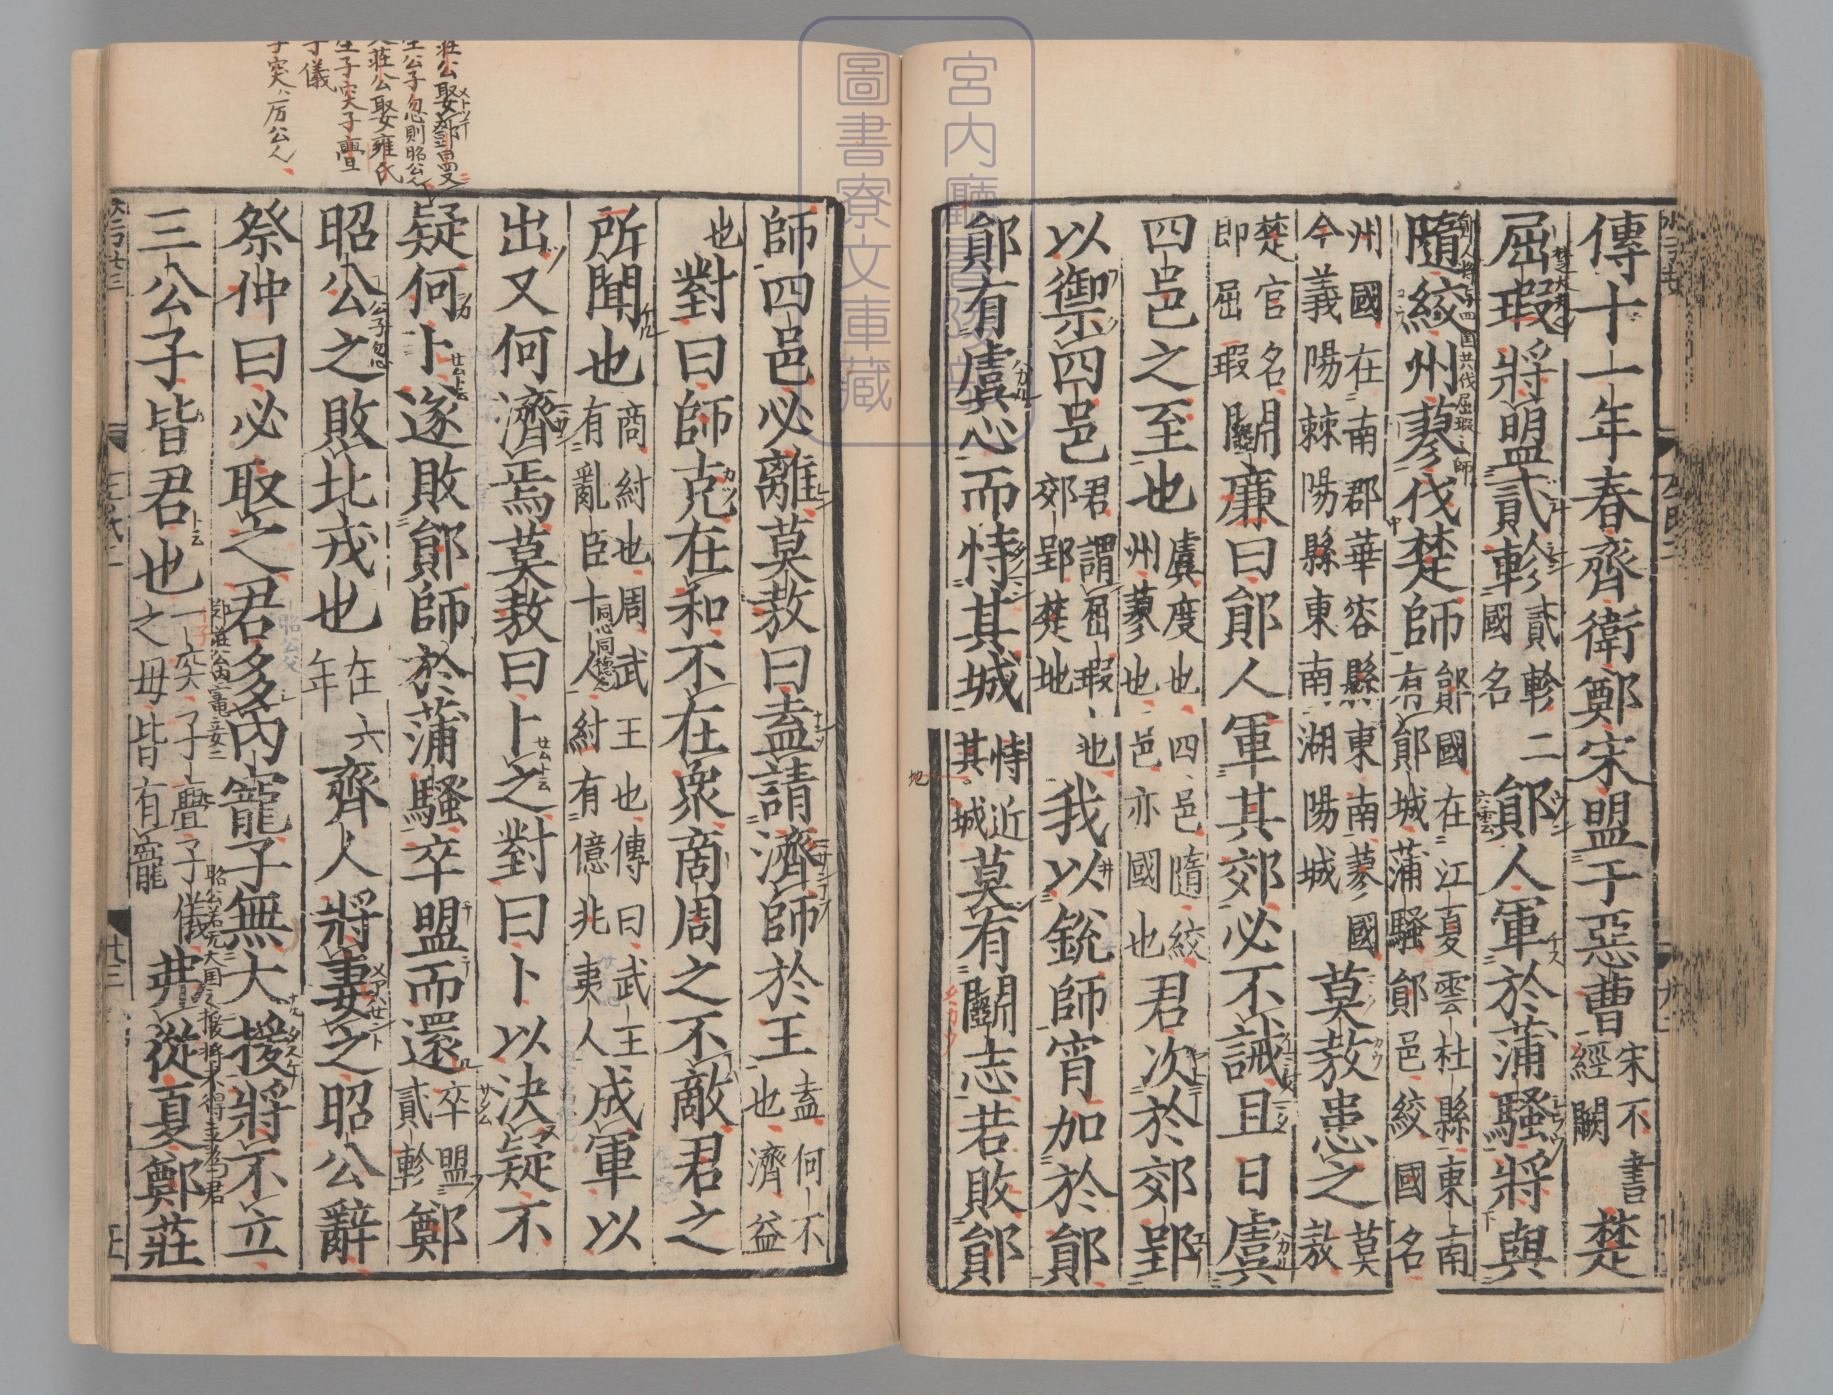 傳十一年春齊衛鄭宋盟于惡曹宋不書經闕楚
屈瑕將盟貳軫貳軫二國名鄖人軍於蒲騷將與
隨絞州蓼伐楚師鄖國在江夏雲杜縣東南有鄖城蒲騷鄖邑絞國名
州國在南郡華容縣東南蓼國今義陽棘陽縣東南湖陽城莫敖患之莫敖
楚官名即屈瑕鬬廉曰鄖人軍其郊必不誡且日虞
四邑之至也虞度也四邑隨絞州蓼也邑亦國也君次於郊郢
以禦四邑君謂屈瑕也郊郢楚地我以銳師宵加於鄖
鄖有虞心而恃其城恃近其城莫有鬬志若敗鄖
師四邑必離莫敖曰盍請濟師於王盍何不也濟益
也對曰師克在和不在衆商周之不敵君之
所聞也商紂也周武王也傳曰武王有亂臣十人紂有億兆夷人成軍以
出又何濟焉莫敖曰卜之對曰卜以決疑不
疑何卜遂敗鄖師於蒲騷卒盟而還卒盟貳軫鄭
昭公之敗北戎也在六年齊人將妻之昭公辭
祭仲曰必取之君多內寵子無大援將不立
三公子皆君也子突子亹子儀之母皆有寵弗從夏鄭莊
宮内廳書陵部
圖書寮文庫藏